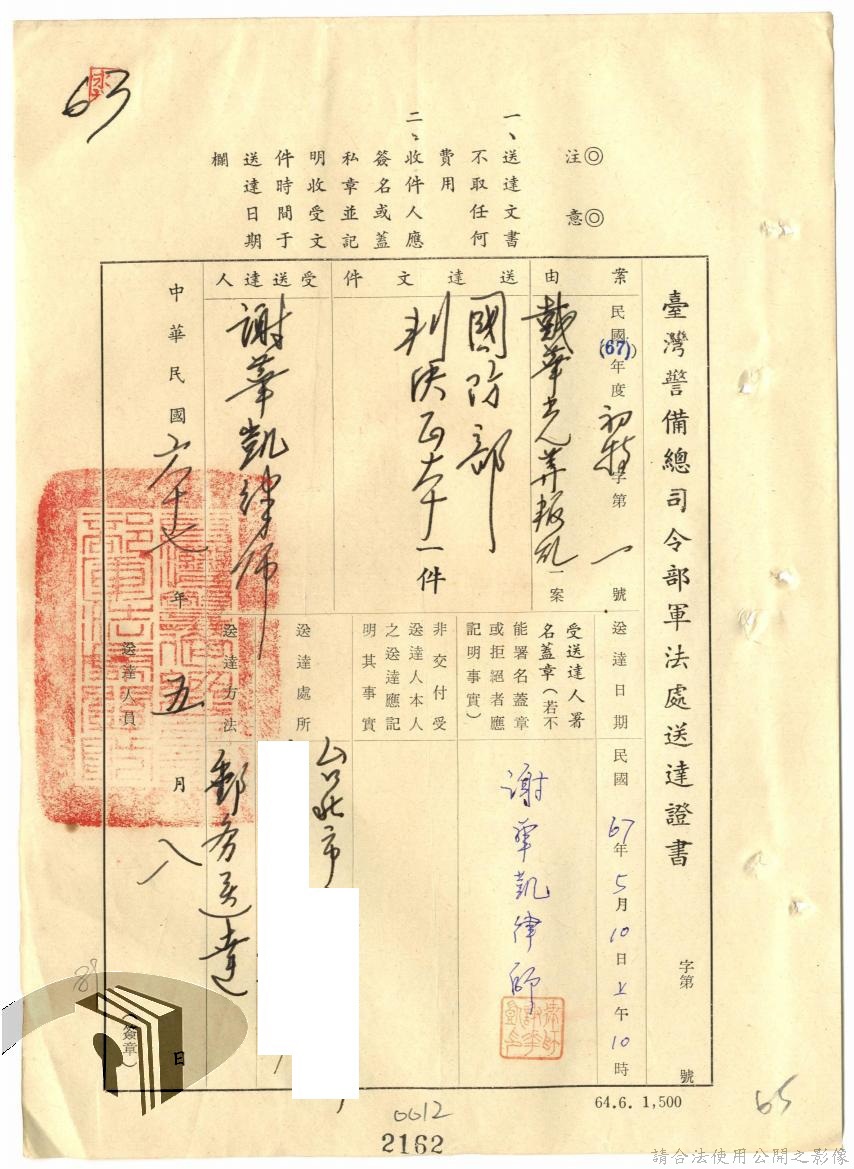 63
◎注意◎
一、送達文書
不取任何
費用
二、收件人應
簽名或蓋
私章並記
明收受文
件時間于
送達日期
欄
臺灣警備總司令部軍法處送達證書
字第
號
案由
民國(67)年度初特字第一號
戴華光等叛亂一案
送達文件
國防部
判決正本一件
受送達人
謝華凱律師
中華民國六十七年五月八日
送達日期
民國67年5月10日上午10時
受送達人署
名蓋章(若不
能署名蓋章
或拒絕者應
記明事實)
謝華凱律師
非交付受
送達人本人
之送達應記
明其事實
送達處所
台北市
送達方法
郵務送達
送達人員
(簽章)
64.6. 1,500
65
0012
2162
請合法使用公開之影像